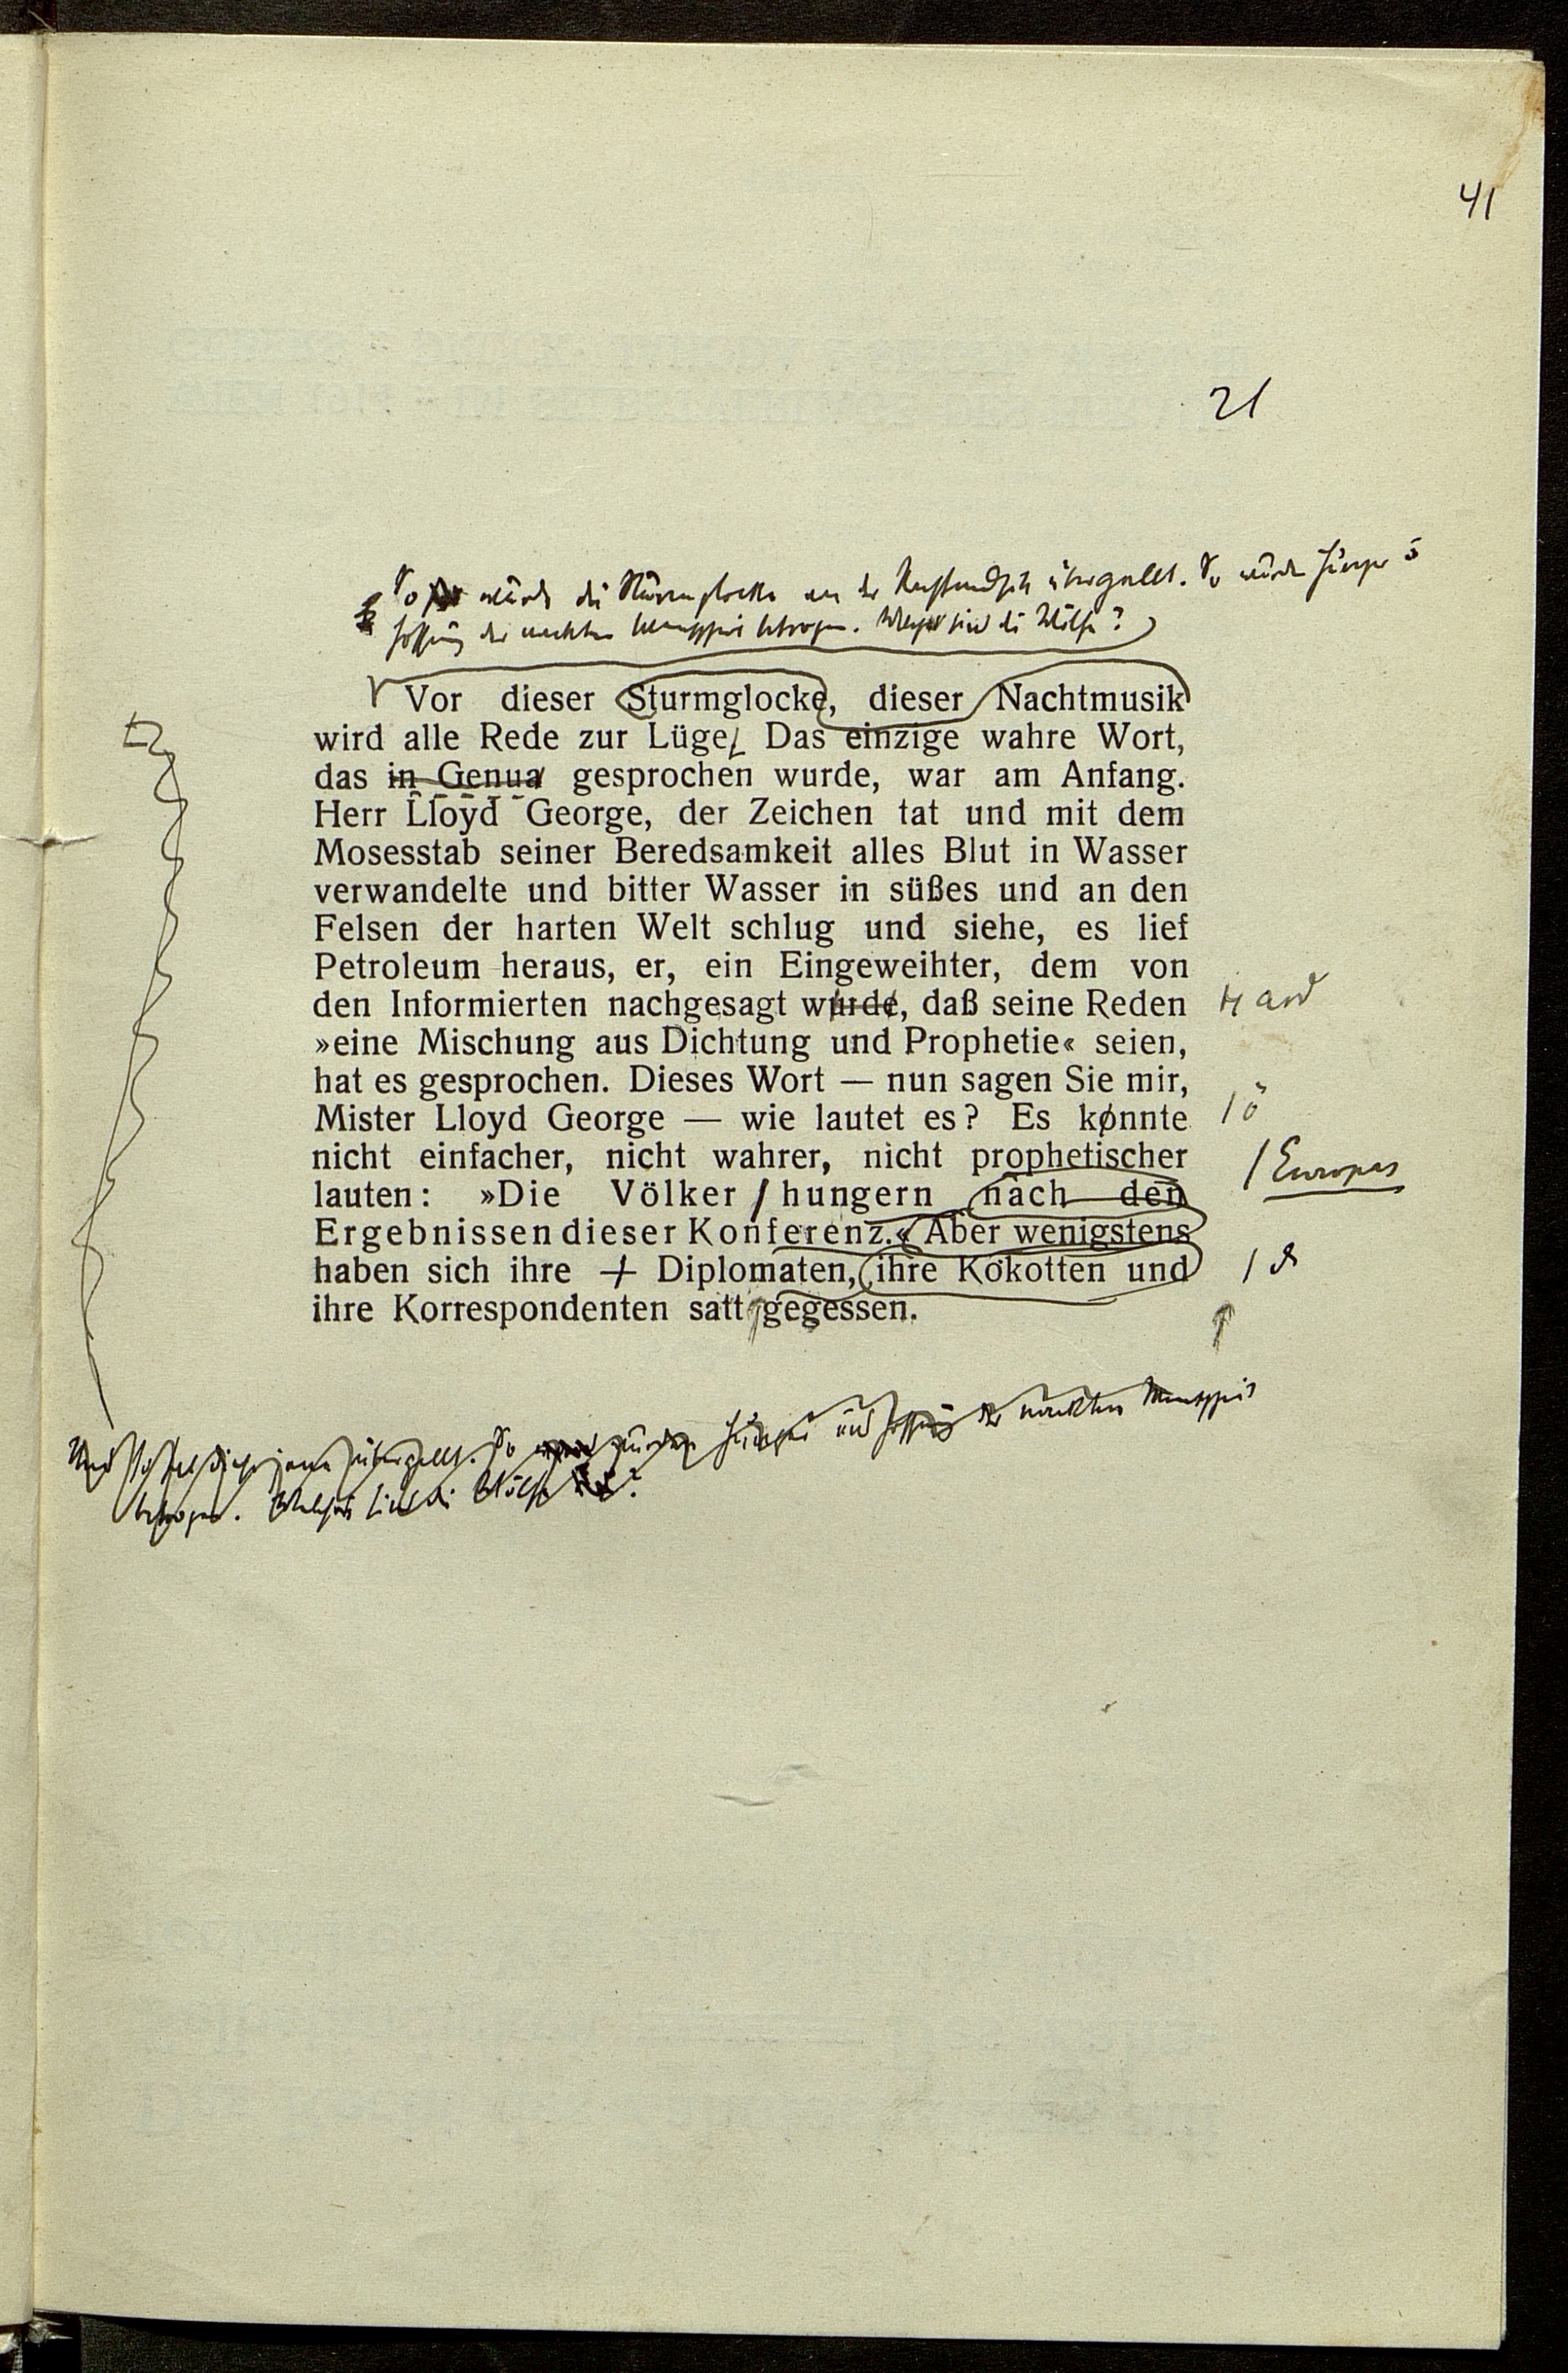 41
21
So wurde die Sturmglocke an der Riviera übergellt. So wurde Hunger u
Hoffnung der nackten betrogen. Welches sind die Wölfe?
Vor dieser Sturmglocke, dieser Nachtmusik
wird alle Rede zur Lüge. Das einzige wahre Wort,
das in Genua gesprochen wurde, war am Anfang.
Herr Lloyd George, der Zeichen tat und mit dem
Mosesstab seiner Beredsamkeit alles Blut in Wasser
verwandelte und bitter Wasser in süßes und an den
Felsen der harten Welt schlug und siehe, es lief
Petroleum heraus, er, ein Eingeweihter, dem von
den Informierten nachgesagt wurde, daß seine Reden
»eine Mischung aus Dichtung und Prophetie« seien,
hat es gesprochen. Dieses Wort — nun sagen Sie mir,
Mister Lloyd George — wie lautet es? Es konnte
ö
nicht einfacher, nicht wahrer, nicht prophetischer
Europas
lauten: »Die Völker hungern nach den
Ergebnissen dieser Konferenz.« Aber wenigstens
haben sich ihre Diplomaten, ihre Kokotten und
ihre Korrespondenten satt gegessen.
übergellt. So wurden Hunger und Hoffnung der nackten
betrogen. Welches sind die Wölfe?